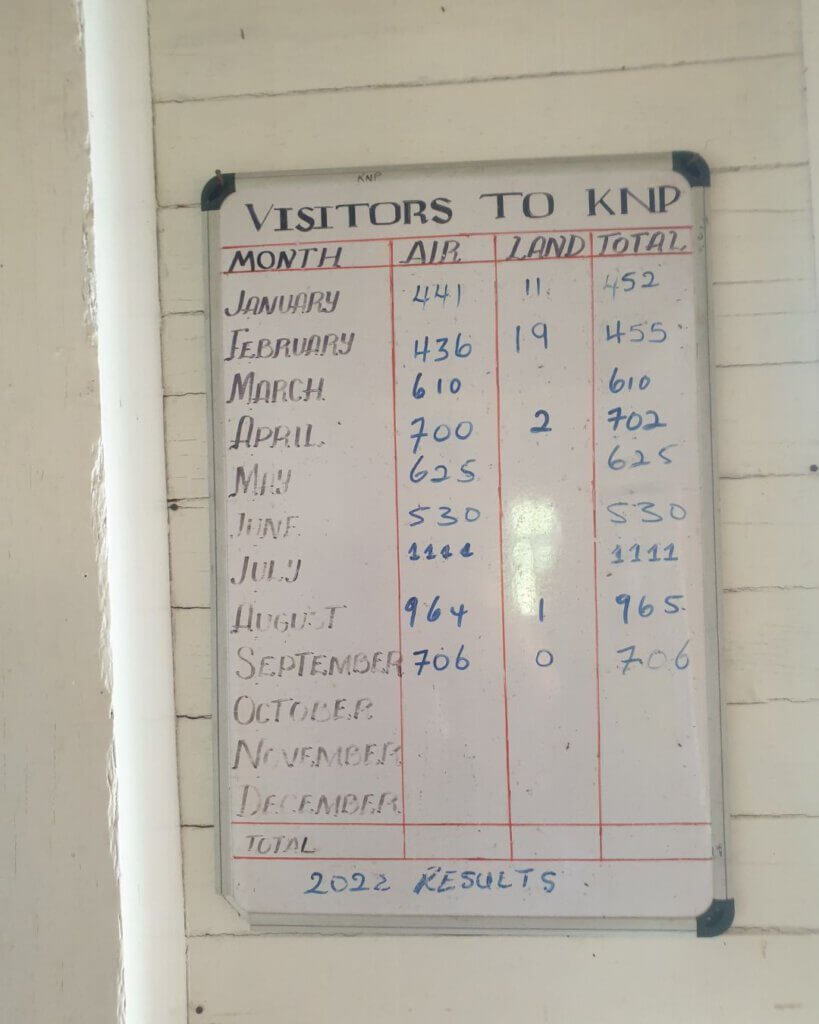 KNP
VISITORS TO KNP
MONTH AIR LAND TOTAL
JANUARY 441 11 452
FEBRUARY 436 19 455
MARCH 610 610
APRIL 700 2 702
MAY 625 625
JUNE 530 530
JULY 1111 1111
AUGUST 964 1 965
SEPTEMBER 706 0 706
OCTOBER
NOVEMBER
DECEMBER
TOTAL
2022 RESULTS